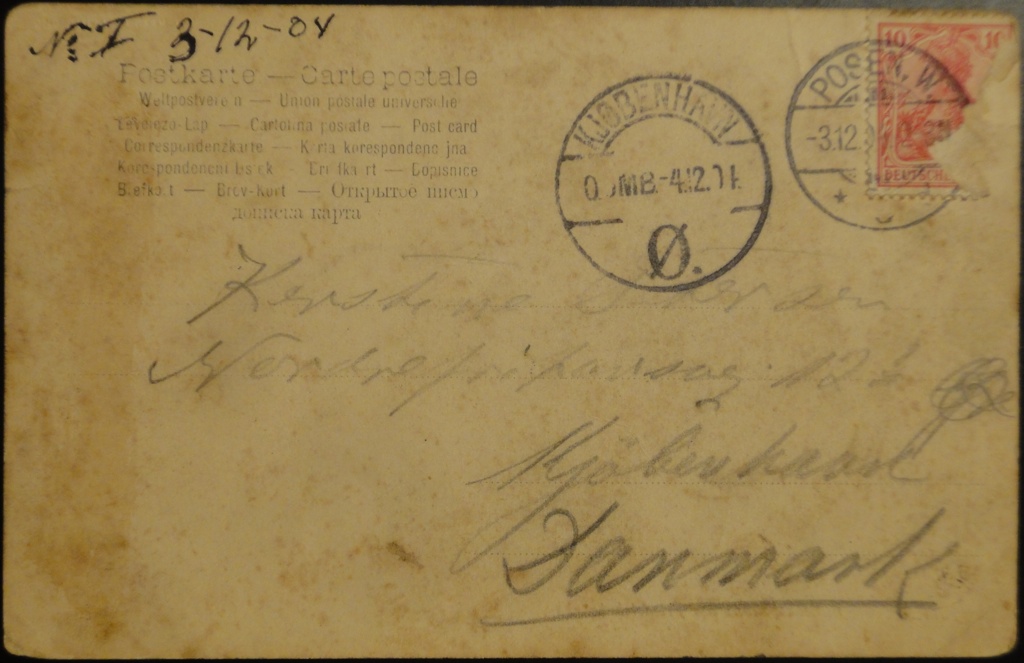 No I 3-12-04
Postkarte — Carte postale
Weltpostverein — Union postale universelle
Levelező-Lap — Cartolina postale — Post card
Correspondenzkarte — Karta korespondencyjna
Korespondenční lístek — — Dopisnice
Briefkaart — Brev-Kort — Открытое письмо
дописна карта
KJØBENHAVN
OMB. -4.12.04
Ø.
POSEN. W.
-3.12.
10 10
DEUTSCHE
Kerstine
12
Kjöbenhavn
Danmark